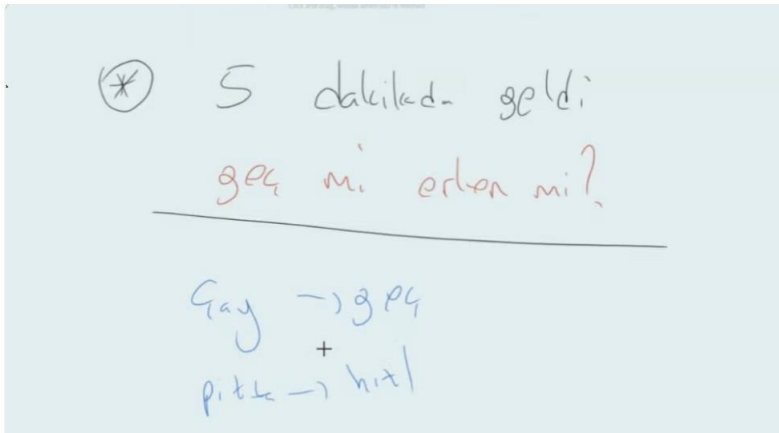 * 5 dakikada geldi
geç mi erken mi?
Çay → geç
pizza → hızlı